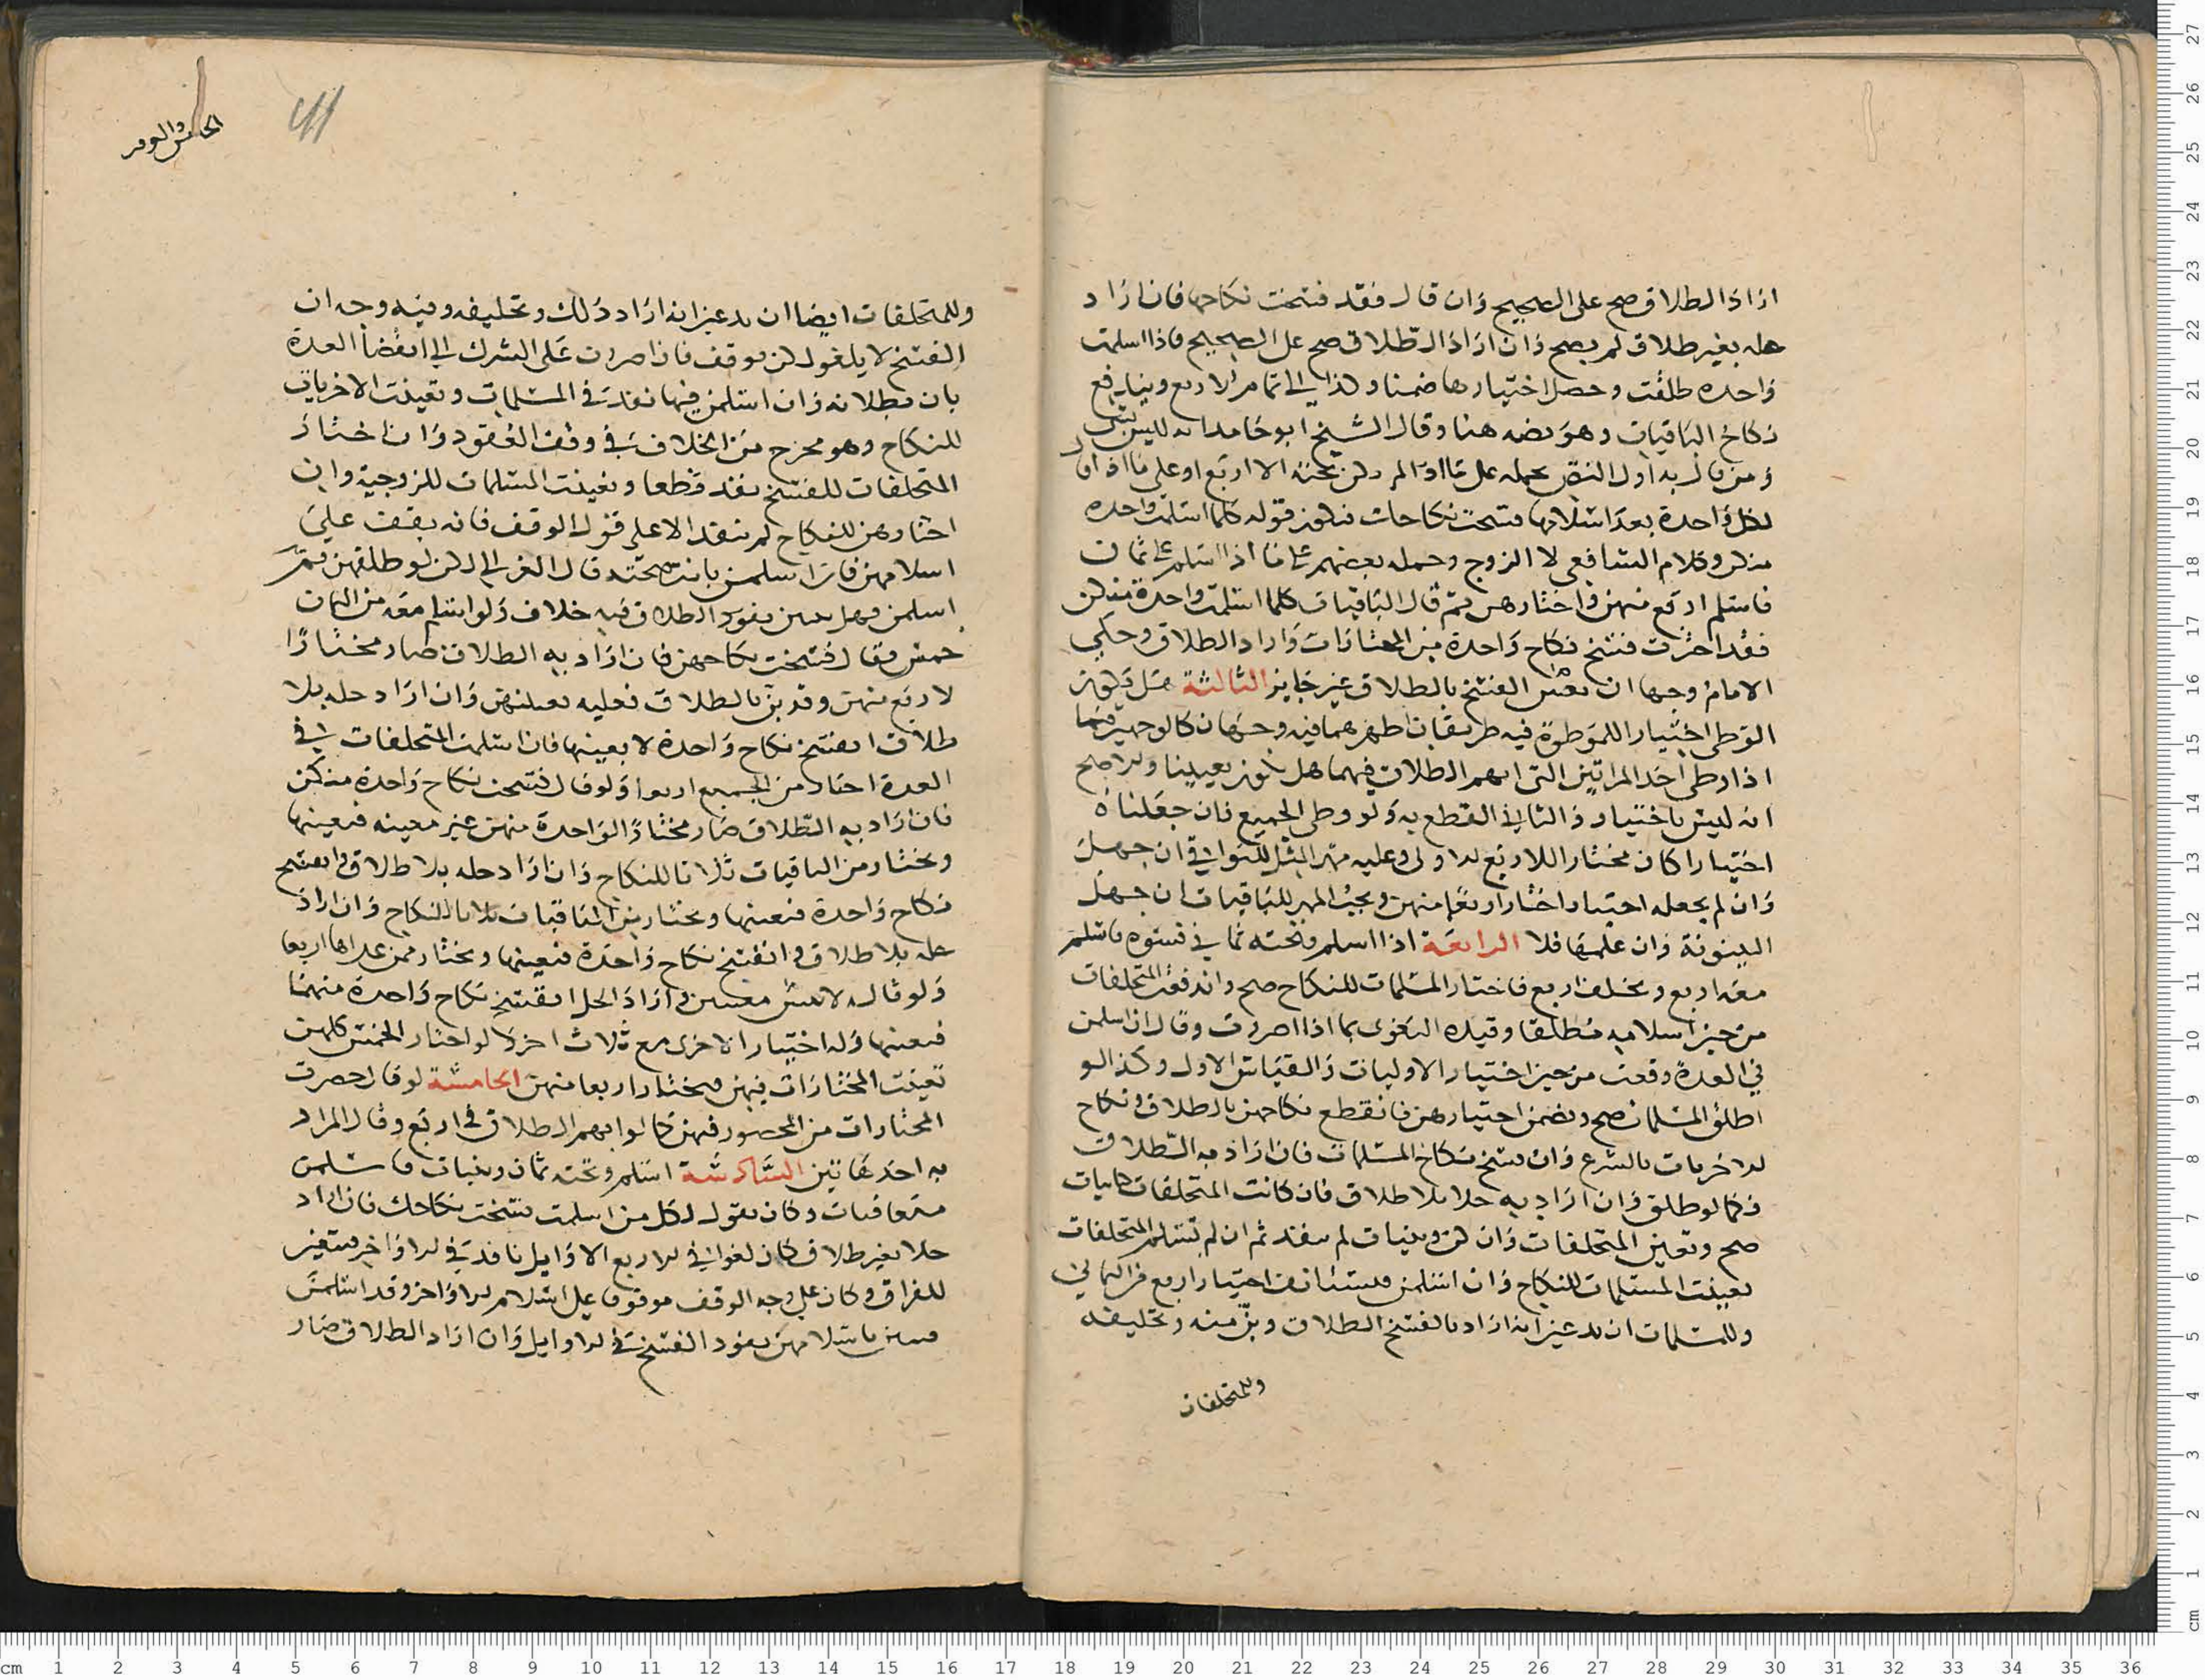 اراد الطلاق صح على الصحيح وان قال فقد فسخت نكاحها فان اراد
حله بغير طلاق لم يصح وان اراد الطلاق صح على الصحيح فاذا اسلمت
واحده طلقت وحصل اختيارها ضمنا وكذا الى تمام الاربع ويندفع
نكاح الباقيات وهو نصه هنا وقال الشيخ ابو حامد انه ليس بشي
ومن قال به اول النص بحمله على ما اذا لم يكن تحته الا اربع او على ما اذا قال
لكل واحدة بعد اسلامها فسخت نكاحك فيكون قوله كلما اسلمت واحده
منكن وكلام الشافعي لا الزوج وحمله بعضهم على ما اذا اسلم على ثمان
فاسلم اربع منهن واختارهن ثم قال الباقيات كلما اسلمت واحدة منكن
فقد اخترت فسخ نكاح واحدة من المختارات واراد الطلاق وحكى
الامام وجها ان تفسير الفسخ بالطلاق غير جايز الثالثة هل يكون
الوطى اختيارا للموطوة فيه طريقان اظهرهما فيه وجهان كالوجهين فيما
اذا وطى احد المراتين التى ابهم الطلاق فيهما هل يكون تعيينا والاصح
انه ليس باختيار والثاني القطع به ولو وطى الجميع فان جعلناه
اختيارا كان مختارا للاربع الاولى وعليه مهر المثل للبواقي ان جهل
وان لم نجعله اختيارا اختار اربعا منهن ويجب المهر للباقيات ان جهل
البينونة وان علمها فلا الرابعة اذا اسلم وتحته ثماني نسوه فاسلم
معه اربع وتخلف اربع فاختار المسلمات للنكاح صح واندفعت المتخلفات
من حين اسلامه مطلقا وقيده البغوى بما اذا اصررن وقال ان اسلمن
في العدة وقعت من حين اختيار الاوليات والقياس الاول وكذا لو
اطلق المسلمات صح وتضمن اختيارهن فانقطع نكاحهن بالطلاق ونكاح
الاخريات بالشرع وان فسخ نكاح المسلمات فان اراد به الطلاق
فكما لو طلق وان اراد به حلا بلا طلاق فان كانت المتخلفات كتابيات
صح وتعين المتخلفات وان كن وثنيات لم ينفذ ثم ان لم تسلم المتخلفات
تعينت المسلمات للنكاح وان اسلمن فيستانف اختيار اربع من الثماني
وللمسلمات ان يدعين انه اراد بالفسخ الطلاق وبن منه وتحليفه
وللمتخلفات
الخامس والعو
وللمتخلفات ايضا ان يدعين انه اراد ذلك وتحليفه وفيه وجه ان
الفسخ لا يلغو لكن يوقف فان اصررن على الشرك الى انقضا العدة
بان بطلانه وان اسلمن فيها نفذ في المسلمات وتعينت الاخريات
للنكاح وهو مخرج من الخلاف في وقف العقود وان اختار
المتخلفات للفسخ نفذ قطعا وتعينت المسلمات للزوجية وان
اختارهن للنكاح لم ينفذ الا على قول الوقف فانه يقف على
اسلامهن فان اسلمن بانت صحته قال الغزالي لكن لو طلقهن ثم
اسلمن فهل يفوذ الطلاق فيه خلاف ولو اسلم معه من الثمان
خمس فقال فسخت نكاحهن فان اراد به الطلاق صار مختارا
لاربع منهن وقد بن بالطلاق فعليه تعيينهن وان اراد حله بلا
طلاق انفسخ نكاح واحدة لا بعينها فان اسلمت المتخلفات في
العدة اختار من الجميع اربعا ولو قال فسخت نكاح واحدة منكن
فان اراد به الطلاق صار مختارا لواحدة منهن غير معينه فيعينها
ويختار من الباقيات ثلاثا للنكاح وان اراد حله بلا طلاق انفسخ
نكاح واحدة فيعينها ويختار من الباقيات ثلاثا للنكاح وان اراد
حله بلا طلاق انفسخ نكاح واحدة فيعينها ويختار ممن عداها اربعا
ولو قاله لاثنتين معينتين واراد الحل انفسخ نكاح واحدة منهما
فيعينها وله اختيار الاخرى مع ثلاث اخر ولو اختار الخمس كلهن
تعينت المختارات فيهن فيختار اربعا منهن الخامسة لو قال حصرت
المختارات من المحصور فيهن كما لو ابهم الطلاق في اربع وقال المراد
به احد هاتين السادسة اسلم وتحته ثمان وثنيات فاسلمن
متعاقبات وكان يقول لكل من اسلمت فسخت نكاحك فان اراد
حلا بغير طلاق كان لغوا في الاربع الاوايل نافذ في الاواخر فيتعين
للفراق وكان على وجه الوقف موقوفا على اسلام الاواخر وقد اسلمن
باسلامهن نفوذ الفسخ في الاوايل وان اراد الطلاق صار